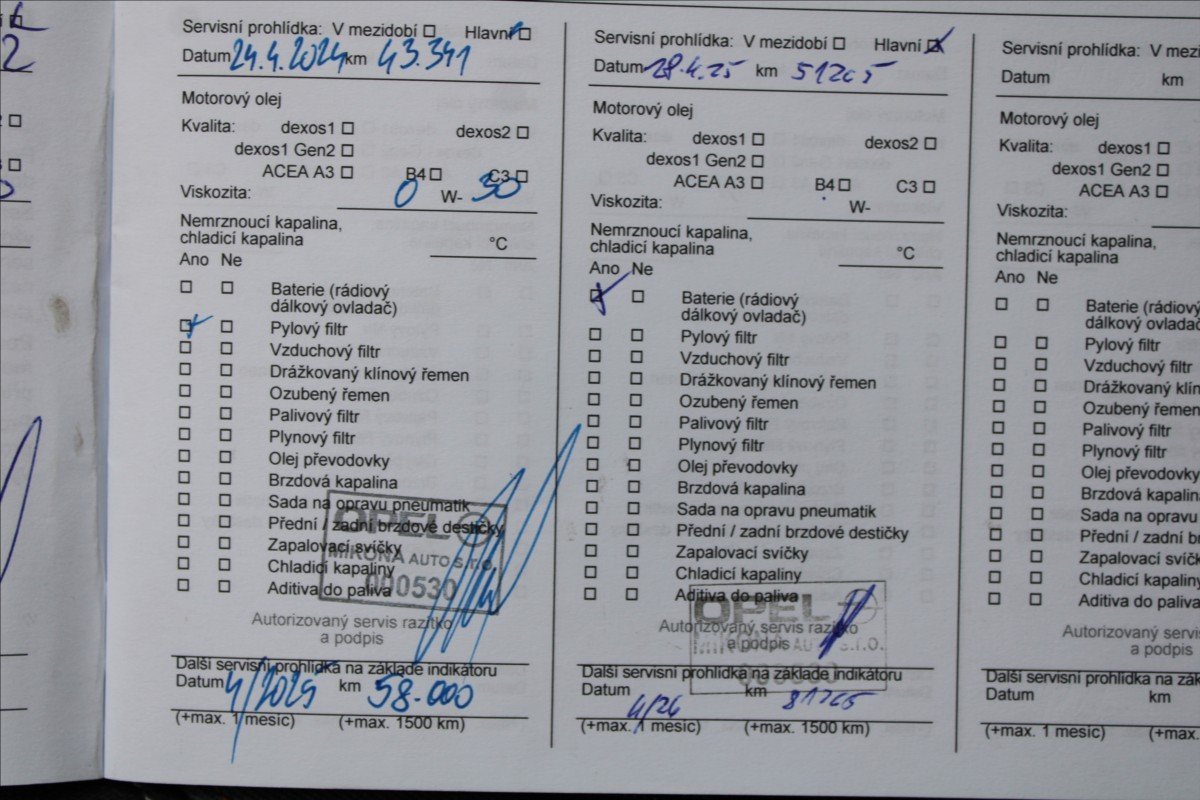 Servisní prohlídka: V mezidobí Hlavní
Datum 24.4.2024 km 43.341
Motorový olej
Kvalita: dexos1 dexos2
dexos1 Gen2
ACEA A3 B4 C3
Viskozita: 0 W- 30
Nemrznoucí kapalina,
chladicí kapalina °C
Ano Ne
Baterie (rádiový
dálkový ovladač)
Pylový filtr
Vzduchový filtr
Drážkovaný klínový řemen
Ozubený řemen
Palivový filtr
Plynový filtr
Olej převodovky
Brzdová kapalina
Sada na opravu pneumatik
Přední / zadní brzdové destičky
Zapalovací svíčky
Chladicí kapaliny
Aditiva do paliva
OPEL
MIRONA AUTO s.r.o.
000530
Autorizovaný servis razítko
a podpis
Další servisní prohlídka na základe indikátoru
Datum 4/2025 km 58.000
(+max. 1 mesic) (+max. 1500 km)
Servisní prohlídka: V mezidobí Hlavní
Datum 28.4.25 km 51265
Motorový olej
Kvalita: dexos1 dexos2
dexos1 Gen2
ACEA A3 B4 C3
Viskozita: W-
Nemrznoucí kapalina,
chladicí kapalina °C
Ano Ne
Baterie (rádiový
dálkový ovladač)
Pylový filtr
Vzduchový filtr
Drážkovaný klínový řemen
Ozubený řemen
Palivový filtr
Plynový filtr
Olej převodovky
Brzdová kapalina
Sada na opravu pneumatik
Přední / zadní brzdové destičky
Zapalovací svíčky
Chladicí kapaliny
Aditiva do paliva
OPEL
Autorizovaný servis razítko
MIRONA AUTO s.r.o.
a podpis
Další servisní prohlídka na základe indikátoru
Datum 4/26 km 81265
(+max. 1 mesic) (+max. 1500 km)
Servisní prohlídka: V mezi
Datum km
Motorový olej
Kvalita: dexos1
dexos1 Gen2
ACEA A3
Viskozita:
Nemrznoucí kapalina,
chladicí kapalina
Ano Ne
Baterie (rádiový
dálkový ovladač
Pylový filtr
Vzduchový filtr
Drážkovaný klín
Ozubený řemen
Palivový filtr
Plynový filtr
Olej převodovky
Brzdová kapalin
Sada na opravu
Přední / zadní br
Zapalovací svíčk
Chladicí kapaliny
Aditiva do paliva
Autorizovaný serv
a podpis
Další servisní prohlídka na zákl
Datum km
(+max. 1 mesic) (+max.